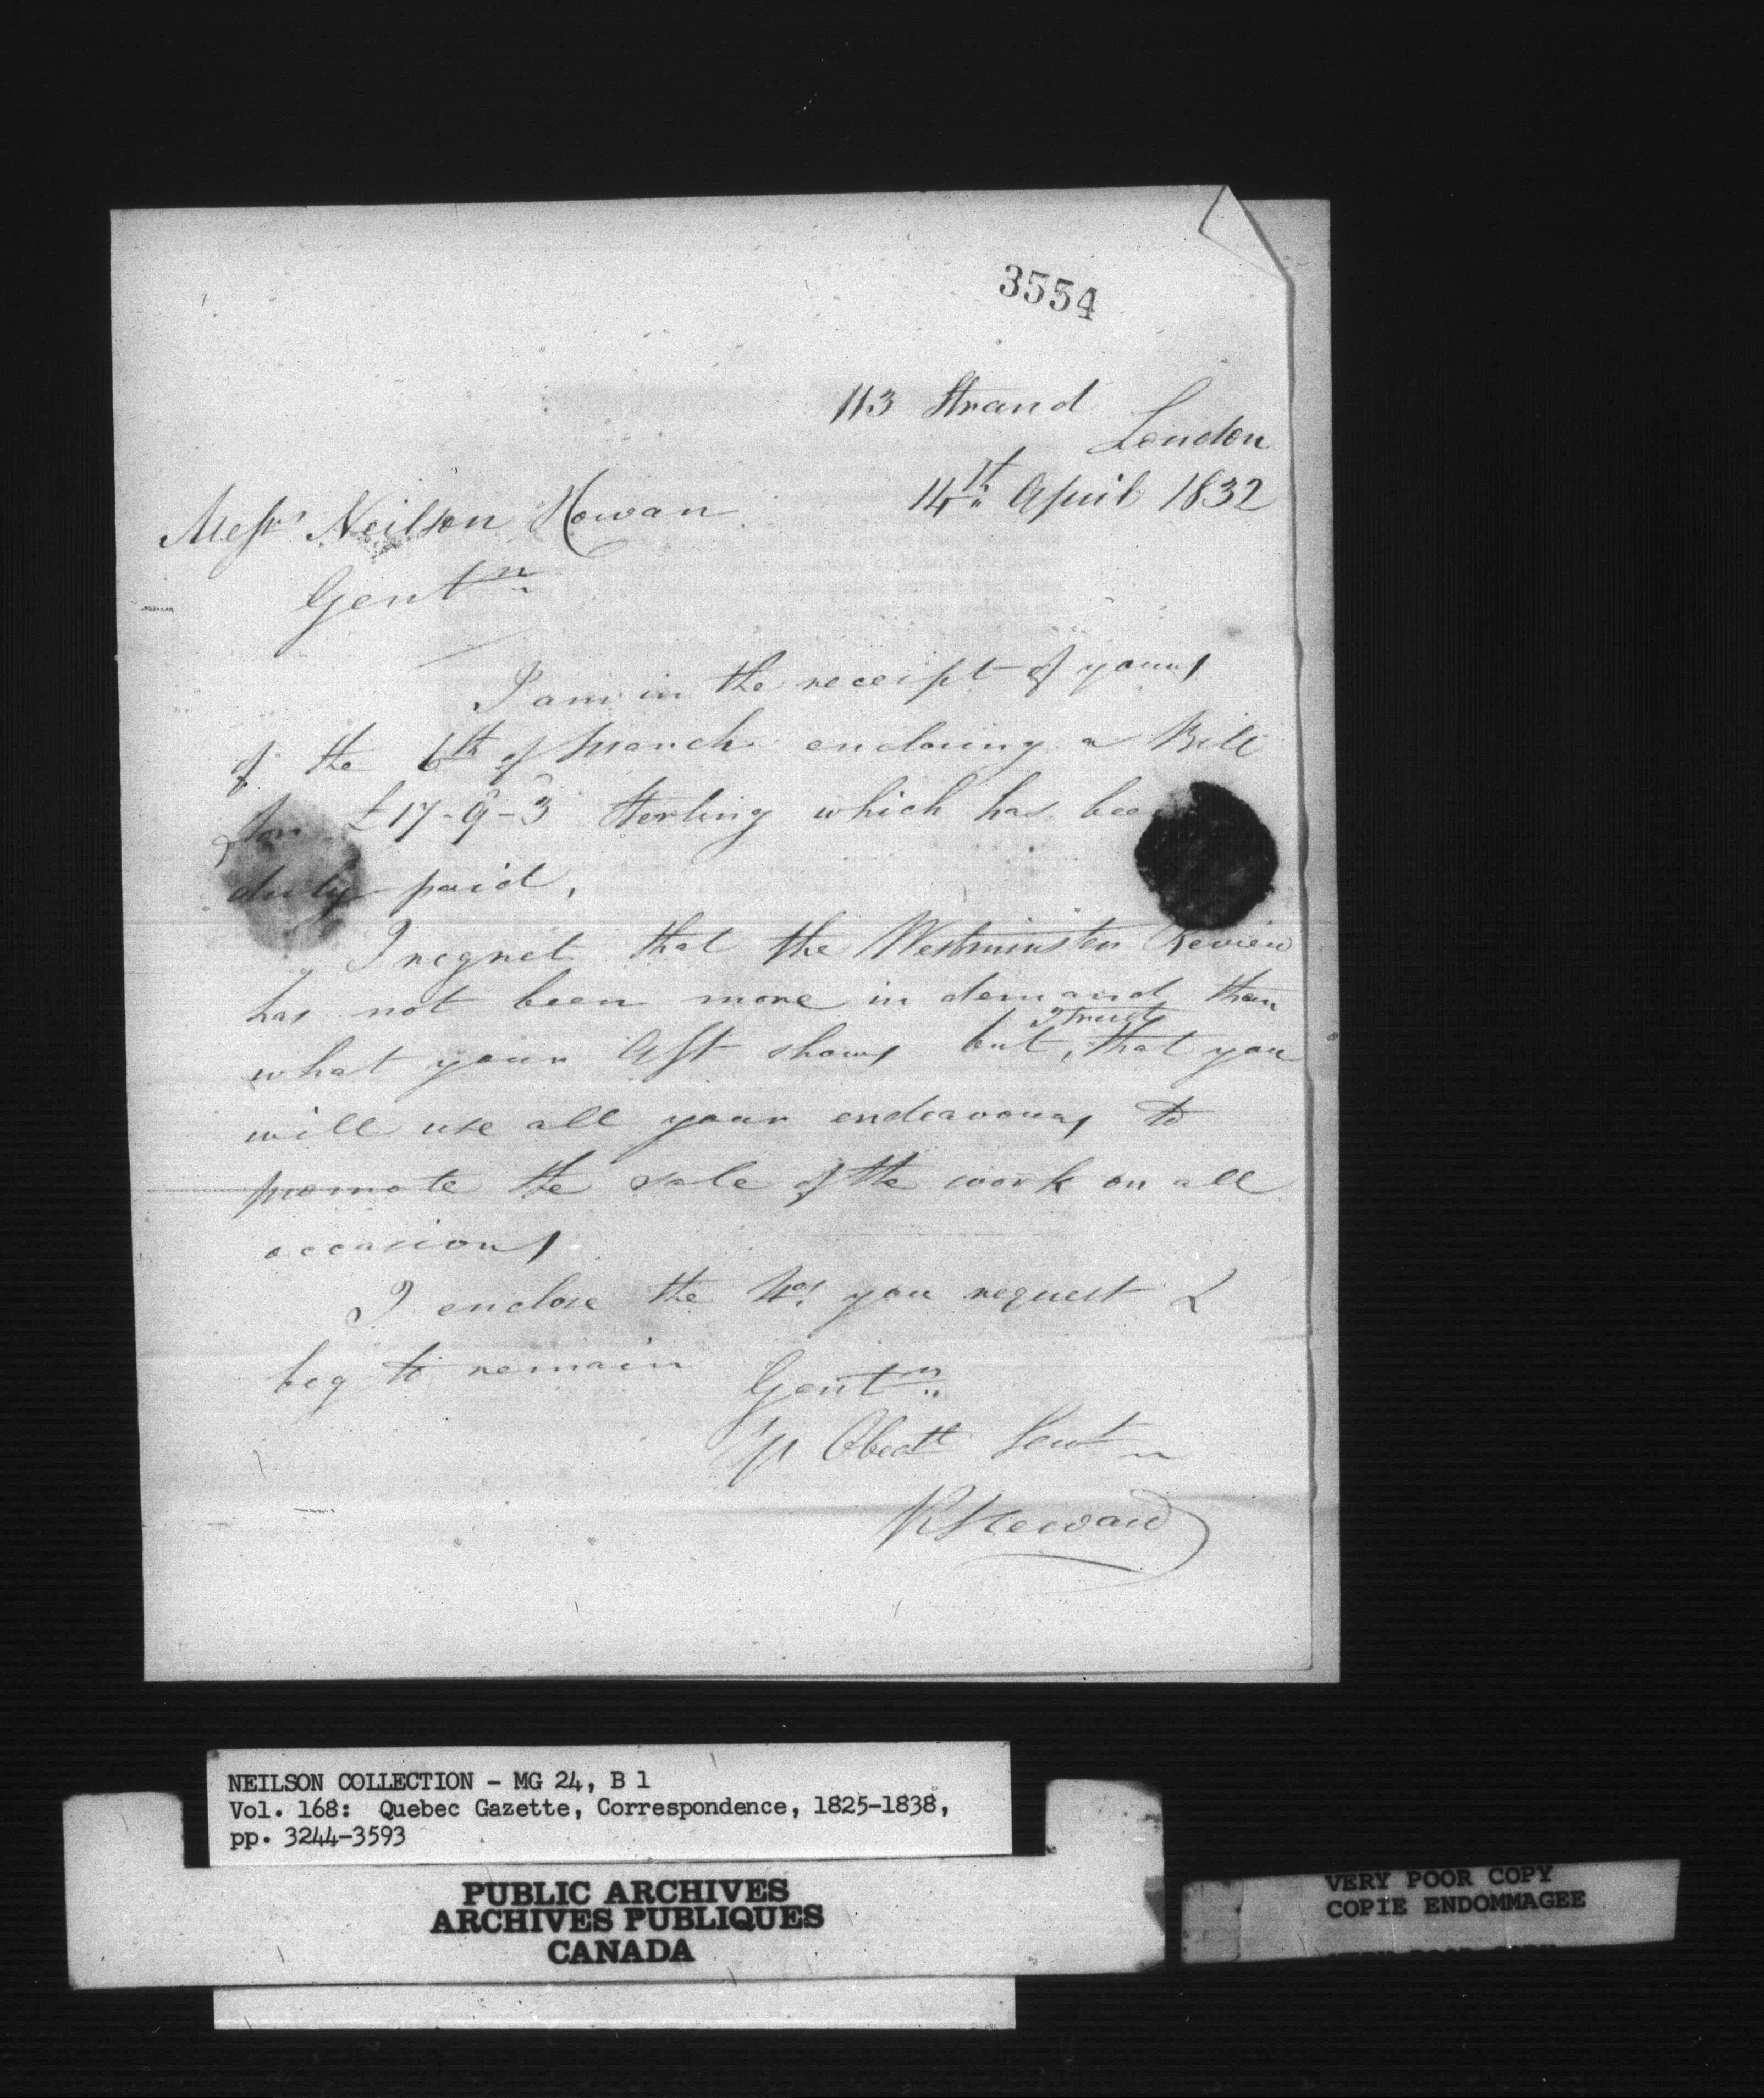 3554
113 Strand
London
14th April 1832
Messrs Neilson Cowan
Gentn
I am in the receipt of yours
of the 6th of March enclosing a Bill
for £17-9-3 Sterling which has bee
duly paid,
I regret that the Westminster Review
has not been more in demand than
what your A/t shows but, I trust that you
will use all your endeavours to
promote the sale of the work on all
occasions
I enclose the Nos you request &
beg to remain
Gentn
Yr Obedt Servt
R Heward
NEILSON COLLECTION - MG 24, B 1
Vol. 168: Quebec Gazette, Correspondence, 1825-1838,
pp. 3244-3593
PUBLIC ARCHIVES
ARCHIVES PUBLIQUES
CANADA
VERY POOR COPY
COPIE ENDOMMAGEE